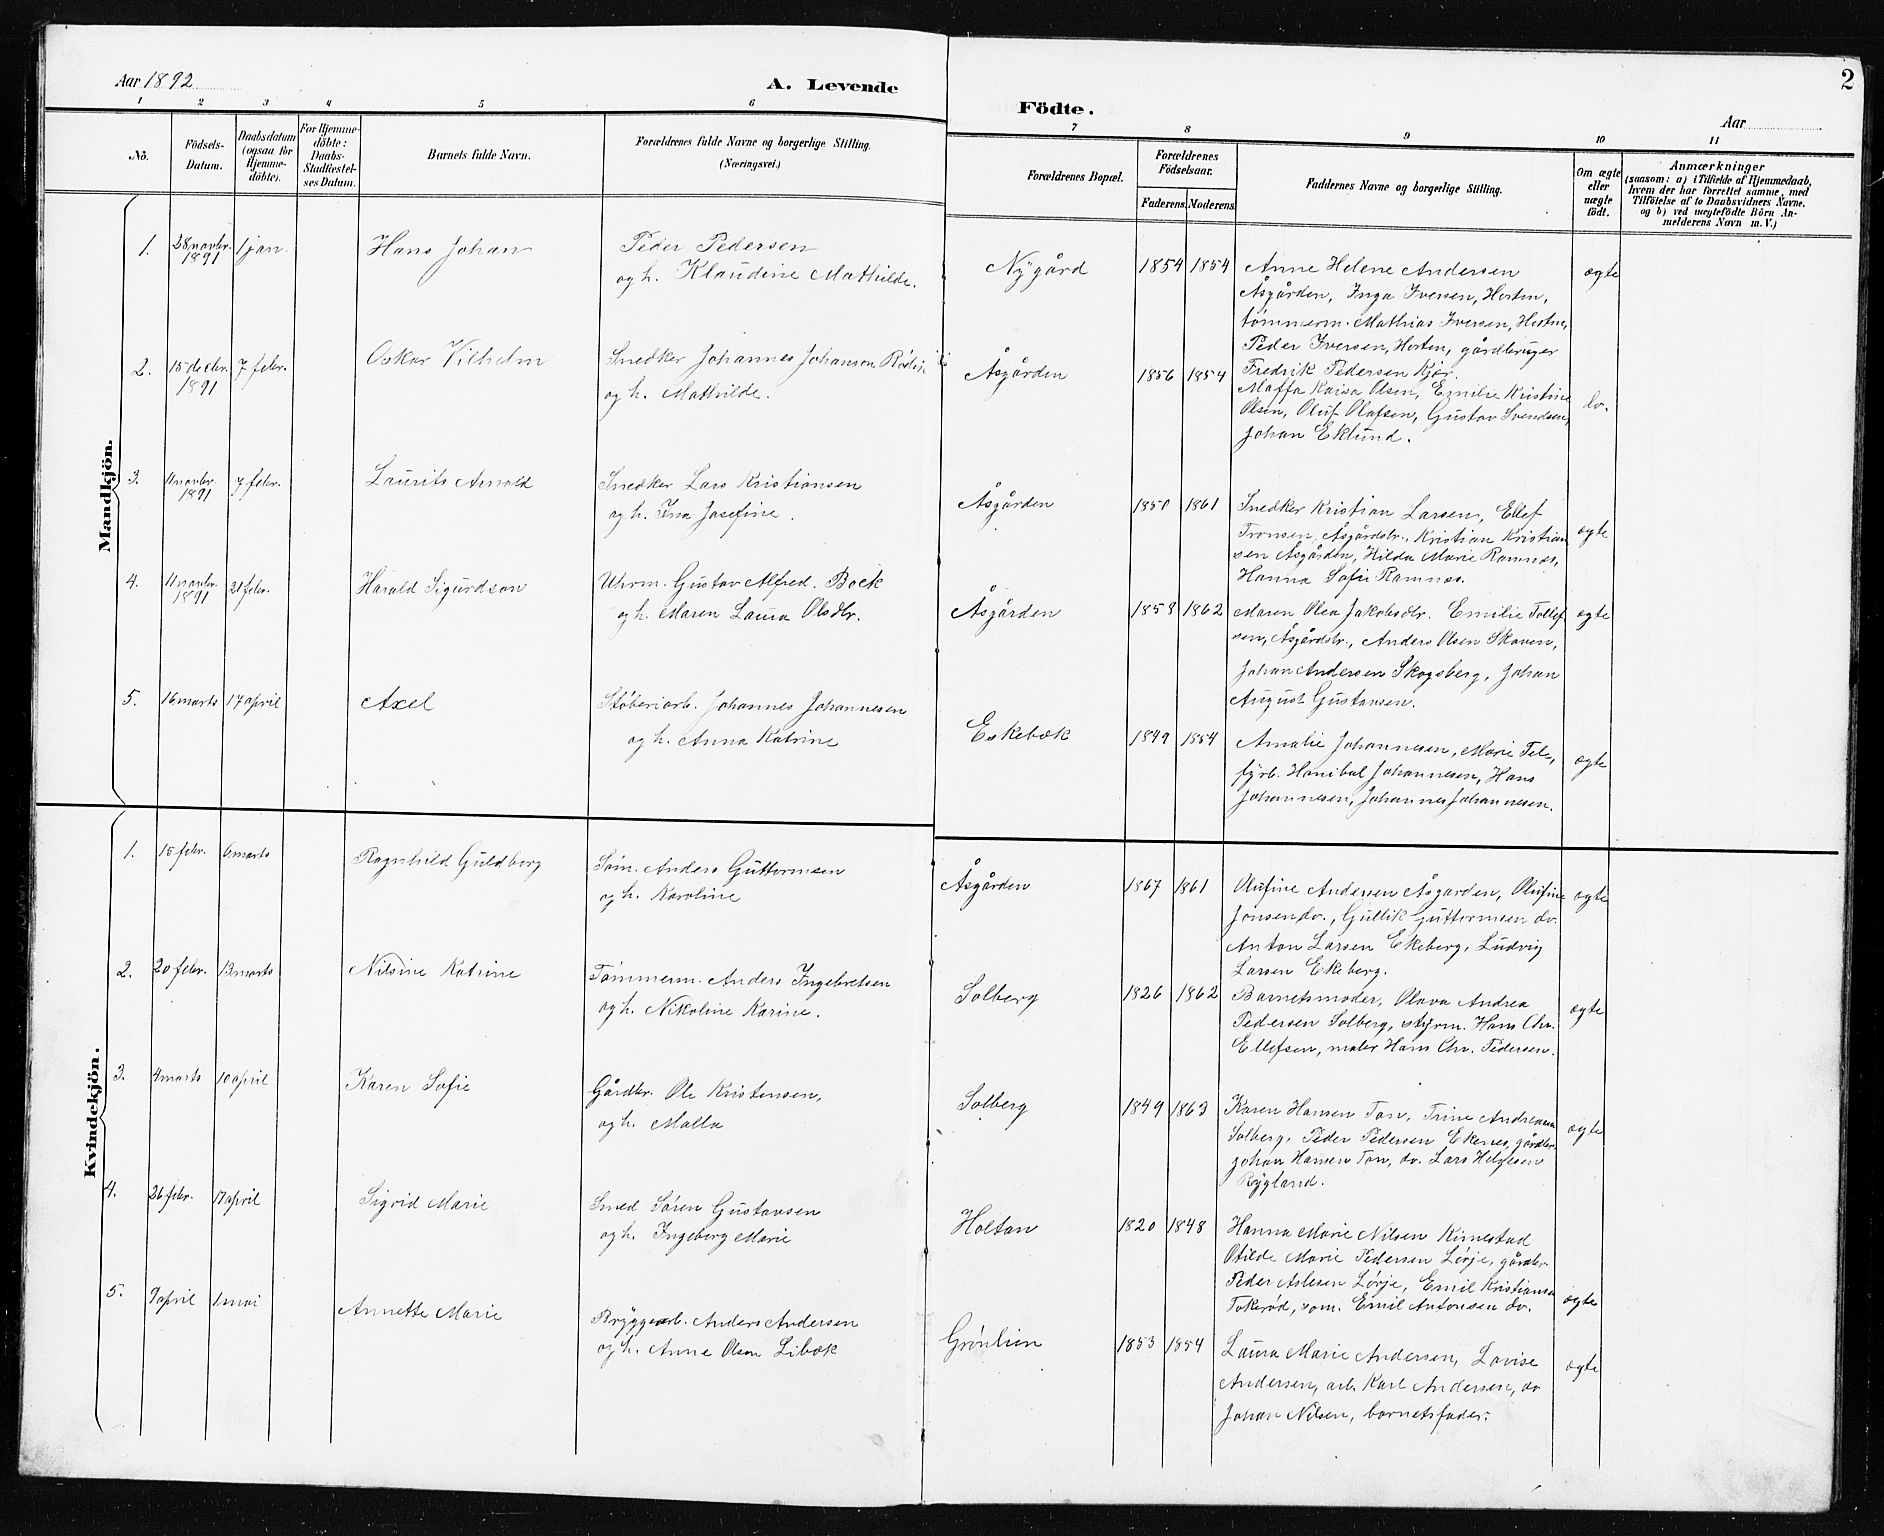 Aar 1892
A. Levende
Födte.
Aar
2
1 2 3 4 5 6 7 8 9 10 11
No.
Födsels-
Datum.
Daabsdatum
(ogsaa for
Hjemme-
döbte).
For Hjemme-
döbte:
Daabs-
Stadfæstel-
ses Datum.
Barnets fulde Navn.
Forældrenes fulde Navne og borgerlige Stilling.
(Næringsvei.)
Forældrenes Bopæl.
Forældrenes
Födselsaar.
Faderens. Moderens.
Faddernes Navne og borgerlige Stilling.
Om ægte
eller
uægte
födt.
Anmærkninger
(saasom: a) i Tilfælde af Hjemmedaab,
hvem der har forrettet samme, med
Tilföielse af to Daabsvidners Navne.
og b) ved uægtefödte Börn An-
melderens Navn m. V.)
Mandkjön.
1. 28 novbr. 1891 1 jan. Hans Johan
Peder Pedersen
og h. Klaudine Mathilde.
Nygård 1854 1854
Anne Helene Andersen
Åsgården, Inga Iversen, Horten,
tømmerm. Mathias Iversen, Horten,
Peder Iversen, Horten, gårdbruger
Fredrik Pedersen Kjær.
ægte
2. 15 decbr. 1891 7 febr. Oskar Vilhelm
Snedker Johannes Johanson
og h. Mathilde.
Åsgården 1856 1854
Maffa Kaisa Olsen, Emilie Kristine
Olsen, Oluf Olafsen, Gustav Svendsen,
Johan Eklund.
do.
3. 11 novbr. 1891 7 febr. Laurits Arnold
Snedker Lars Kristiansen
og h. Ina Josefine.
Åsgården 1850 1861
Snedker Kristian Larsen, Ellef
Tronsen, Åsgårdstr., Kristian Kristian
sen Åsgården, Hilda Marie Ramnes,
Hanna Sofie Ramnes.
ægte
4. 11 novbr. 1891 21 febr. Harald Sigurdson
Uhrm. Gustav Alfred. Bock
og h. Maren Laura Olsdtr.
Åsgården 1858 1862
Maren Olea Jakobsdtr. Emilie Tollef
sen, Åsgårdstr., Anders Olsen Skoven,
Johan Andersen Skogsberg, Johan
August Gustavsen.
ægte
5. 16 marts 17 april Axel
Støberiarb. Johannes Johannesen
og h. Anna Katrine
Eskebæk 1849 1854
Amalie Johannesen, Marie
fyrb. Hanibal Johannesen, Hans
Johannesen, Johannes Johannesen.
ægte
Kvindekjön.
1. 15 febr. 6 marts Ragnhild Guldborg
Søm. Anders Guttormsen
og h. Karoline
Åsgården 1867 1861
Olufine Andersen Åsgarden, Olufine
Jonsen do., Gullik Guttormsen do.
Anton Larsen Ekeberg, Ludvig
Larsen Ekeberg.
ægte
2. 20 febr. 13 marts Nilsine Katrine
Tømmerm. Anders Ingebretsen
og h. Nikoline Karine.
Solberg 1826 1862
Barnetsmoder, Olava Andrea
Pedersen Solberg, styrm. Hans Chr.
Ellefsen, maler Hans Chr. Pedersen.
ægte
3. 4 marts 10 april Karen Sofie
Gårdbr. Ole Kristensen,
og h. Malla
Solberg 1849 1863
Karen Hansen Tan, Trine Andreasen
Solberg, Peder Pedersen Ekenes, gårdbr.
Johan Hansen Tan, do. Lars Helgesen
Rygland.
ægte
4. 26 febr. 17 april Sigrid Marie
Smed Søren Gustavsen
og h. Ingeborg Marie
Holtan 1820 1848
Hanna Marie Nilsen Kimestad
Otilde Marie Pedersen Lørje, gårdbr.
Peder Aslesen Lørje, Emil Kristiansen
Tokerød, søm. Emil Antonsen do.
ægte
5. 9 april 1 mai Annette Marie
Bryggearb. Anders Andersen
og h. Anne Olsen Libæk
Grønlien 1853 1854
Laura Marie Andersen, Lovise
Andersen, arb. Karl Andersen, do
Johan Nilsen, barnetsfader.
ægte